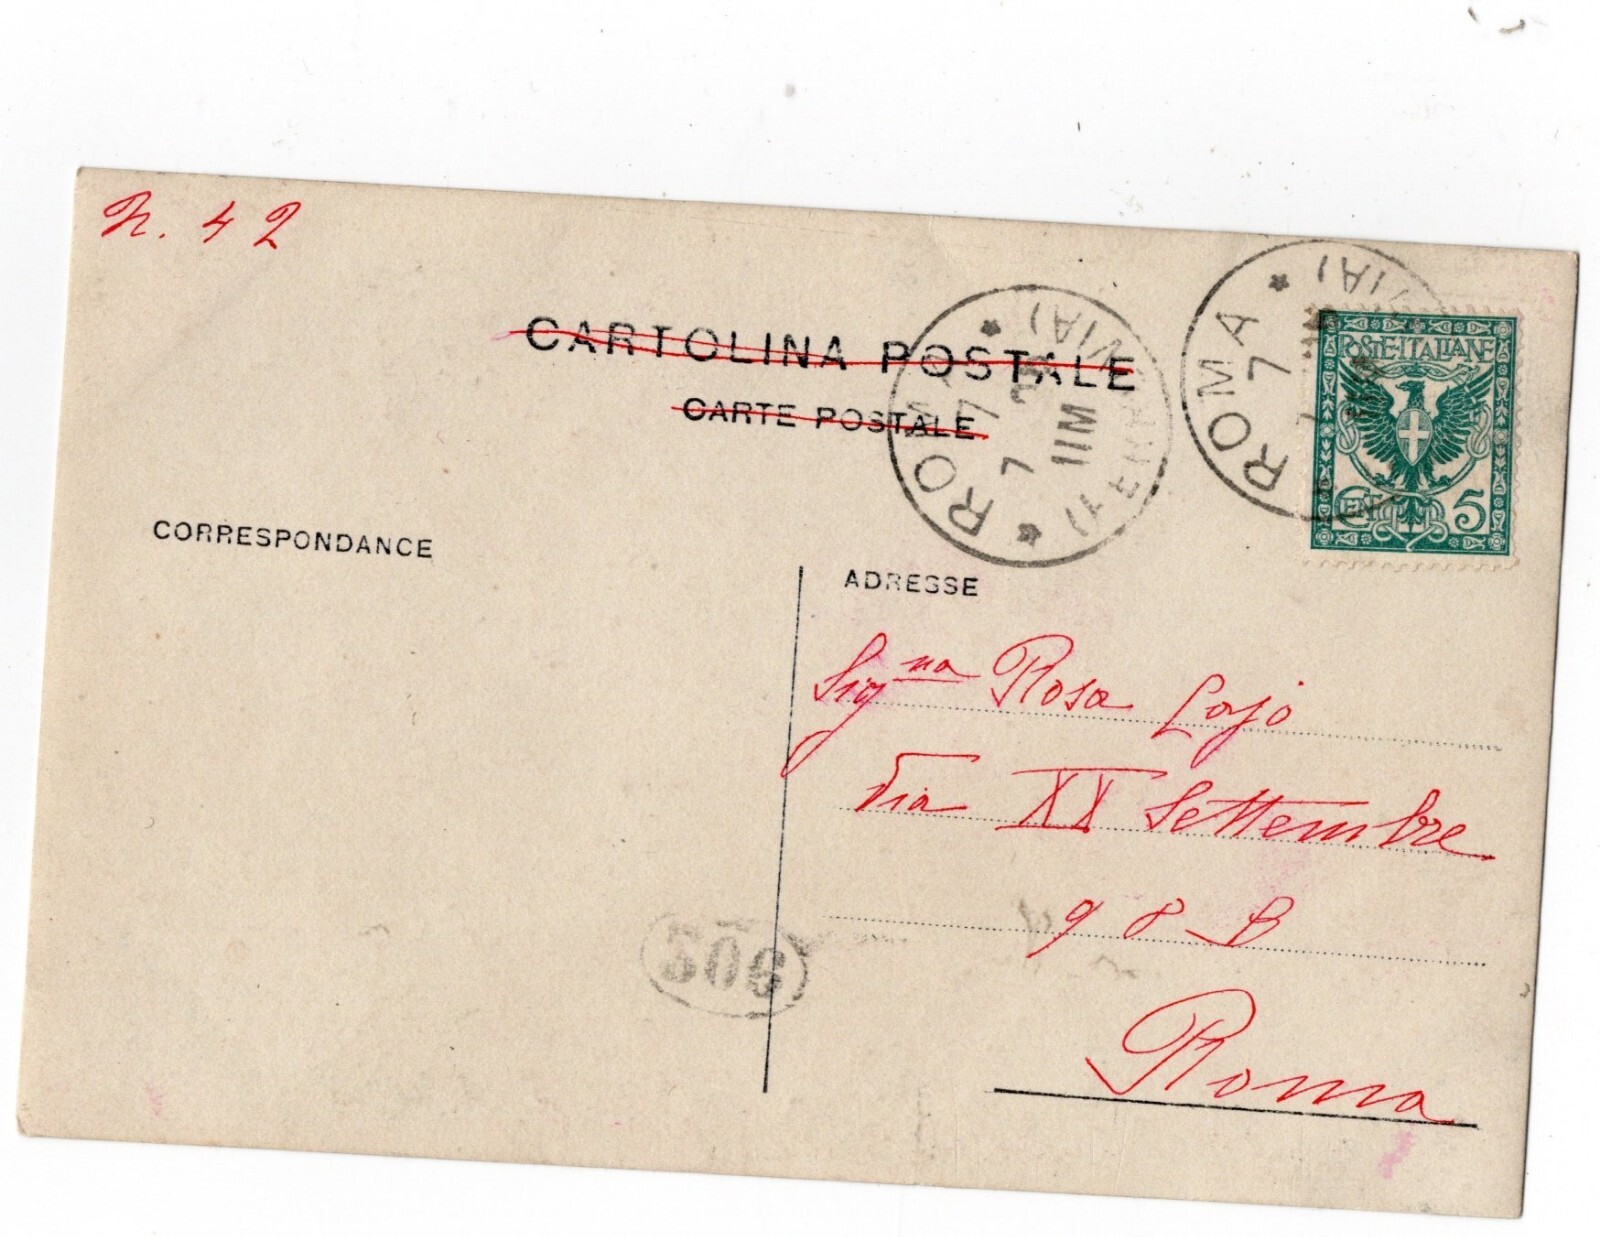 N. 42
CARTOLINA POSTALE
CARTE POSTALE
ROMA
(FERROVIA)
7 7
11M
ROMA
7
POSTE·ITALIANE
CENT 5
CORRESPONDANCE
ADRESSE
Signa Rosa Lojo
Via XX Settembre
98 B
Roma